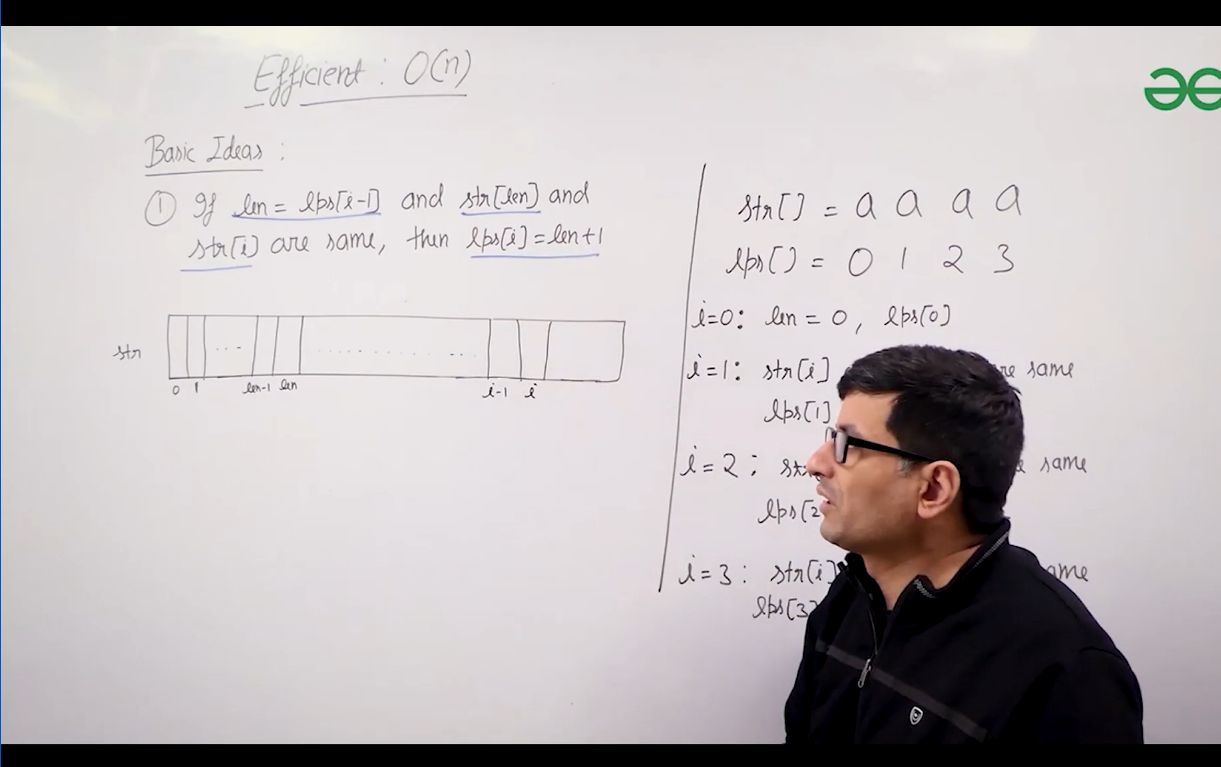 Efficient : O(n)
Basic Ideas :
① If len = lps[i-1] and str[len] and
str[i] are same, then lps[i]=len+1
str
0 1 ... len-1 len ........... ... i-1 i
str[] = a a a a
lps[] = 0 1 2 3
i=0: len = 0, lps[0]
i=1: str[i] same
lps[1]
i=2; same
lps[2
i=3: str[i]
lps[3]